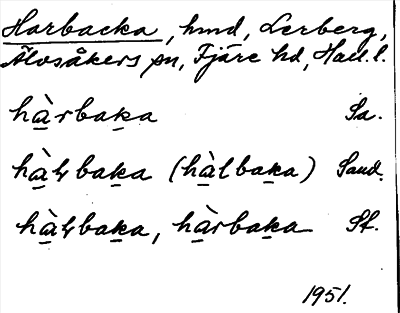 Harbacka, hmd, Lerberg,
Älvsåkers sn, Fjäre hd, Hall. l.
hàrbaka Sa.
hàɽbaka (hàlbaka) Sand.
hàɽbaka, hàrbaka Sf.
1951.